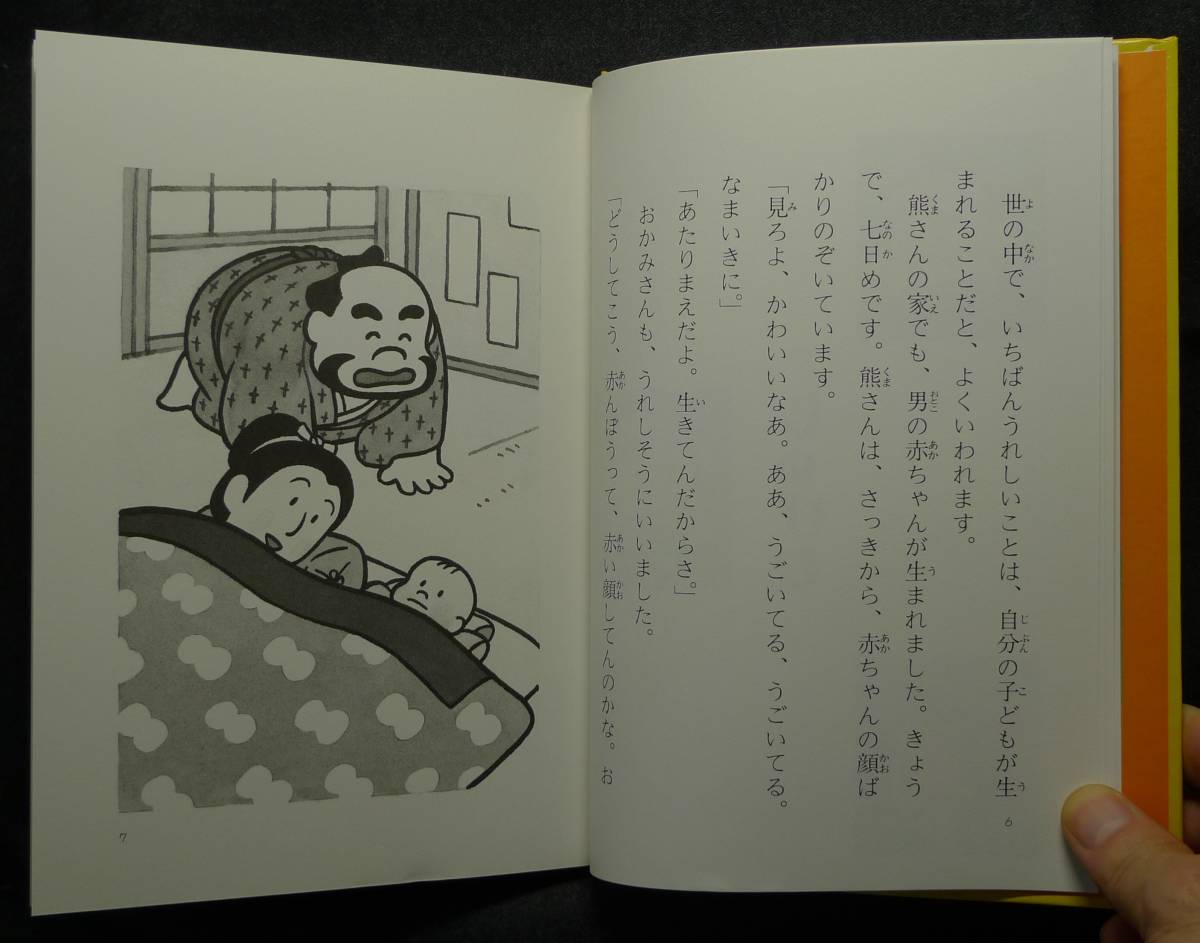 世の中で、いちばんうれしいことは、自分の子どもが生
まれることだと、よくいわれます。
熊さんの家でも、男の赤ちゃんが生まれました。きょう
で、七日めです。熊さんは、さっきから、赤ちゃんの顔ば
かりのぞいています。
「見ろよ、かわいいなあ。ああ、うごいてる、うごいてる。
なまいきに。」
「あたりまえだよ。生きてんだからさ。」
おかみさんも、うれしそうにいいました。
「どうしてこう、赤んぼうって、赤い顔してんのかな。お
6
7